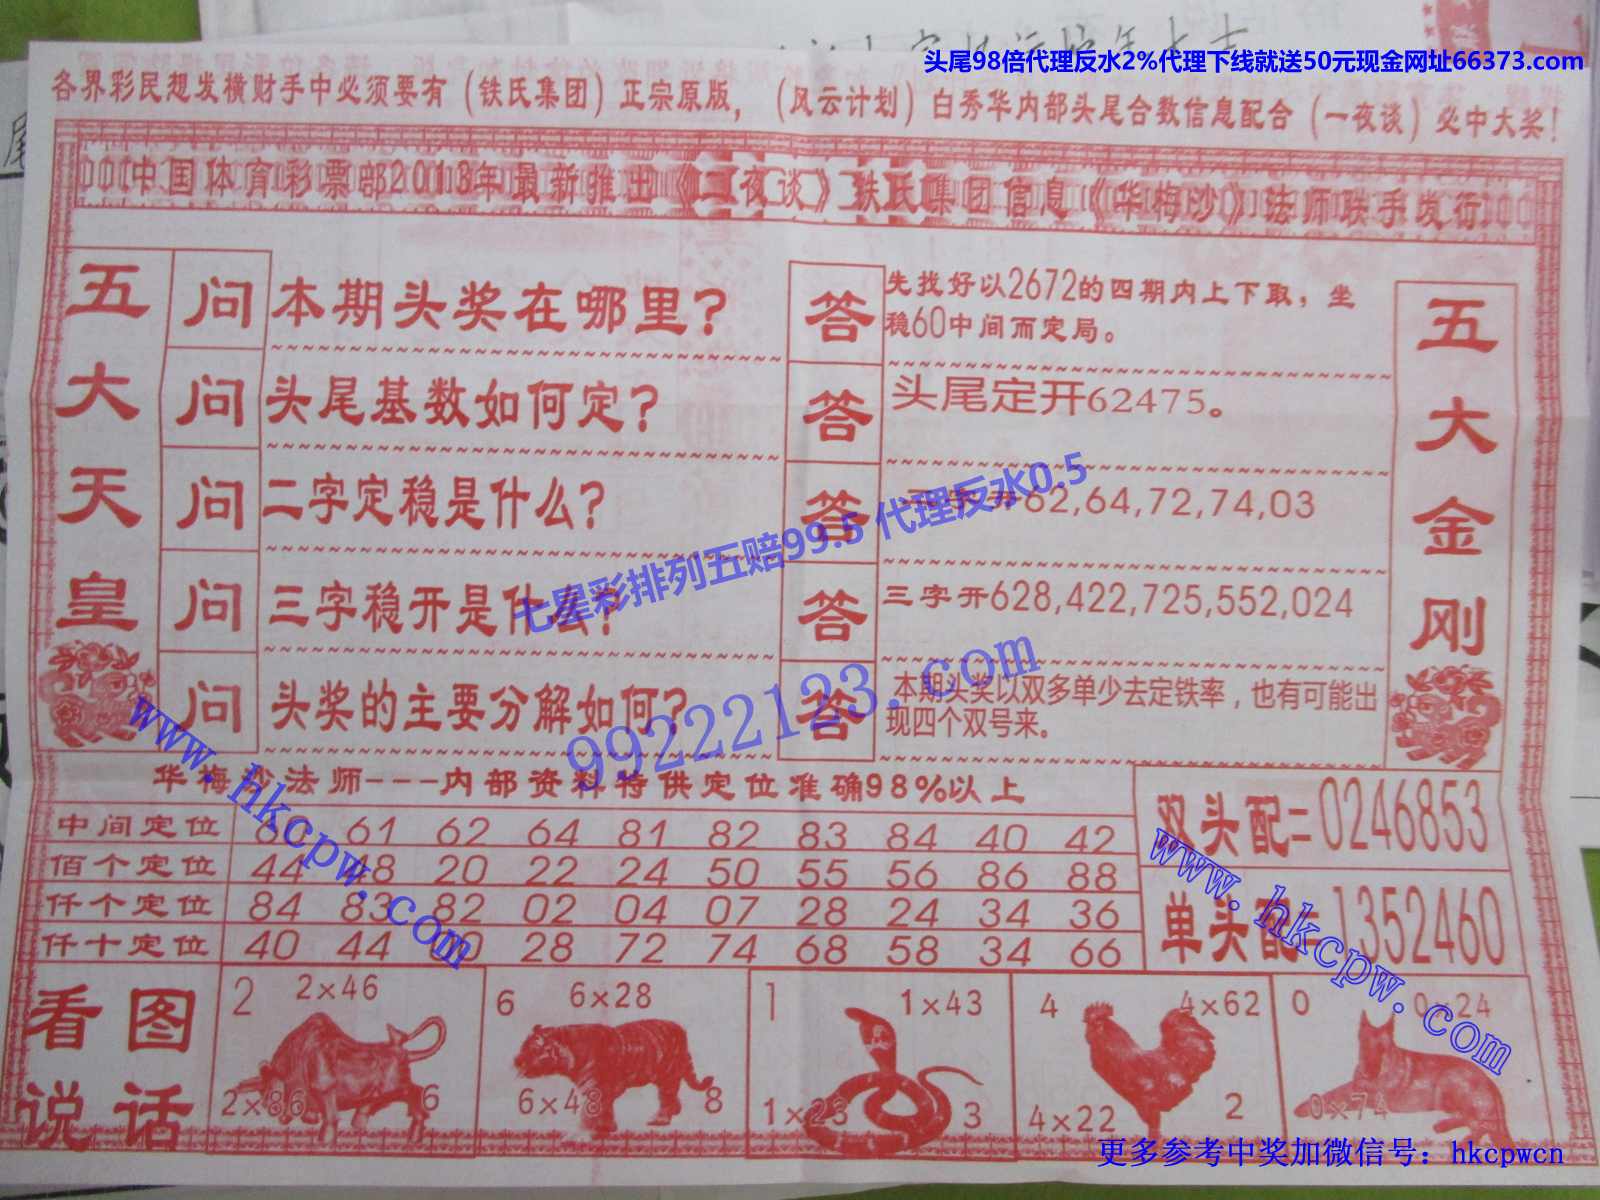 头尾98倍代理反水2%代理下线就送50元现金网址66373.com
各界彩民想发横财手中必须要有（铁氏集团）正宗原版，（风云计划）白秀华内部头尾合数信息配合（一夜谈）必中大奖！
中国体育彩票部2013年最新推出《一夜谈》铁氏集团信息《华梅沙》法师联手发行
五大天皇
问 本期头奖在哪里？
答 先找好以2672的四期内上下取，坐
稳60中间而定局。
问 头尾基数如何定？
答 头尾定开62475。
问 二字定稳是什么？
答 二字开62,64,72,74,03
问 三字稳开是什么？
答 三字开628,422,725,552,024
问 头奖的主要分解如何？
答 本期头奖以双多单少去定铁率，也有可能出
现四个双号来。
五大金刚
七星彩排列五赔99.5 代理反水0.5
99222123.com
www.hkcpw.com
华梅沙法师---内部资料特供定位准确98%以上
中间定位 60 61 62 64 81 82 83 84 40 42
佰个定位 44 48 20 22 24 50 55 56 86 88
仟个定位 84 83 82 02 04 07 28 24 34 36
仟十定位 40 44 20 28 72 74 68 58 34 66
双头配二 0246853
单头配 1352460
www.hkcpw.com
看图
说话
2 2×46
2×86 6
6 6×28
6×48 8
1 1×43
1×23 3
4 4×62
4×22 2
0 0×24
0×74
更多参考中奖加微信号：hkcpwcn